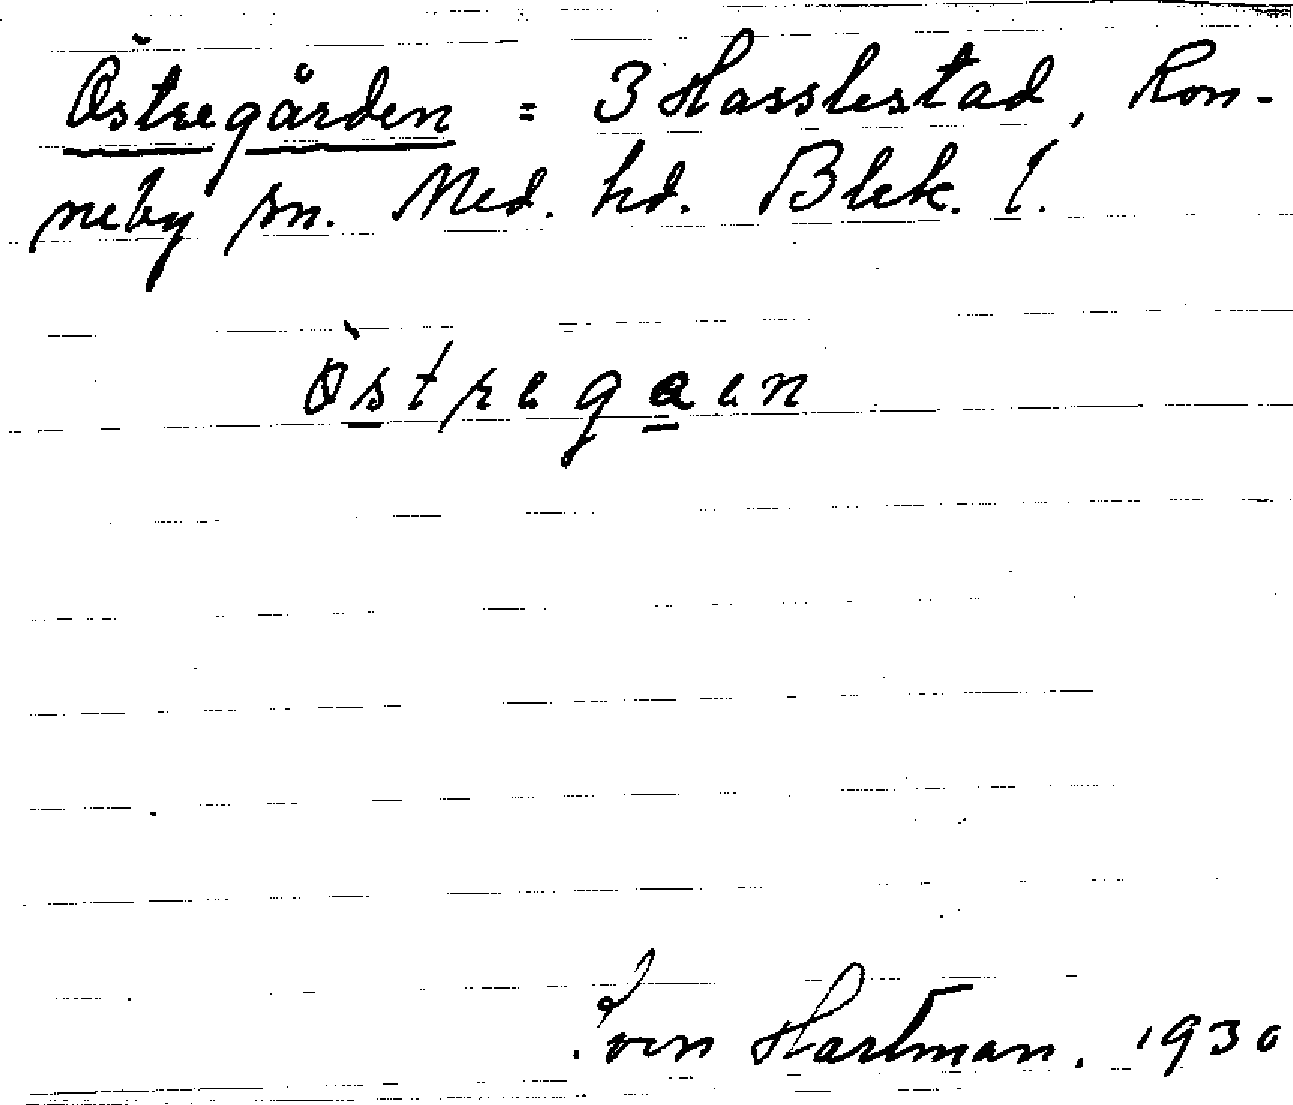 Östregården = 3 Hasslestad, Ron-
neby sn. Med. hd. Blek. l.
Östregaen
Hartman. 1930